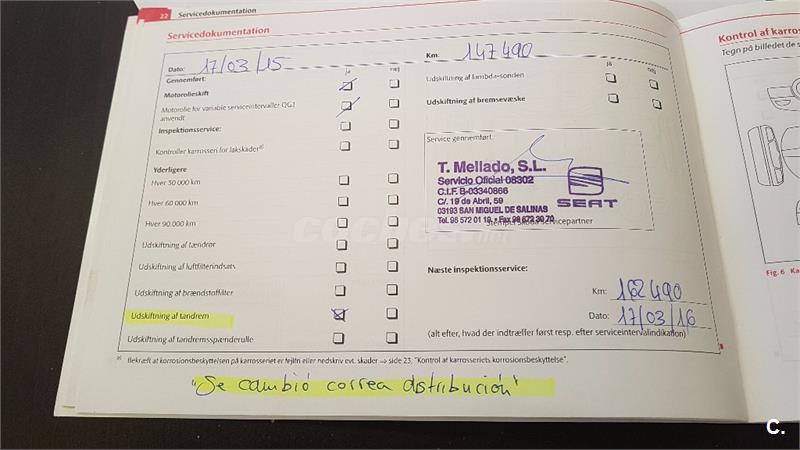 22 Servicedokumentation
Servicedokumentation
Dato: 17/03/15
Km: 147490
Gennemført:
ja nej
Motorolieskift
Motorolie for variable serviceintervaller QG1
anvendt
Inspektionsservice:
Kontroller karrosseri for lakskader a)
Yderligere
Hver 30 000 km
Hver 60 000 km
Hver 90.000 km
Udskiftning af tændrør
Udskiftning af luftfilterindsats
Udskiftning af brændstoffilter
Udskiftning af tandrem
Udskiftning af tandremsspænderulle
ja nej
Udskiftning af lambda-sonden
Udskiftning af bremsevæske
Service gennemført:
T. Mellado, S.L.
Servicio Oficial 08302
C.I.F. B-03340866
C/. 19 de Abril, 59
03193 SAN MIGUEL DE SALINAS
Tel. 96 572 01 19 • Fax 96 672 30 70
SEAT
servicepartner
Næste inspektionsservice:
Km: 162490
Dato: 17/03/16
(alt efter, hvad der indtræffer først resp. efter serviceintervalindikation)
a) Bekræft at korrosionsbeskyttelsen på karrosseriet er fejlfri eller nedskriv evt. skader ⇒ side 23, "Kontrol af karrosseriets korrosionsbeskyttelse".
"Se cambió correa distribución"
Kontrol af karros
Tegn på billedet de s
Fig. 6 Ka
C.